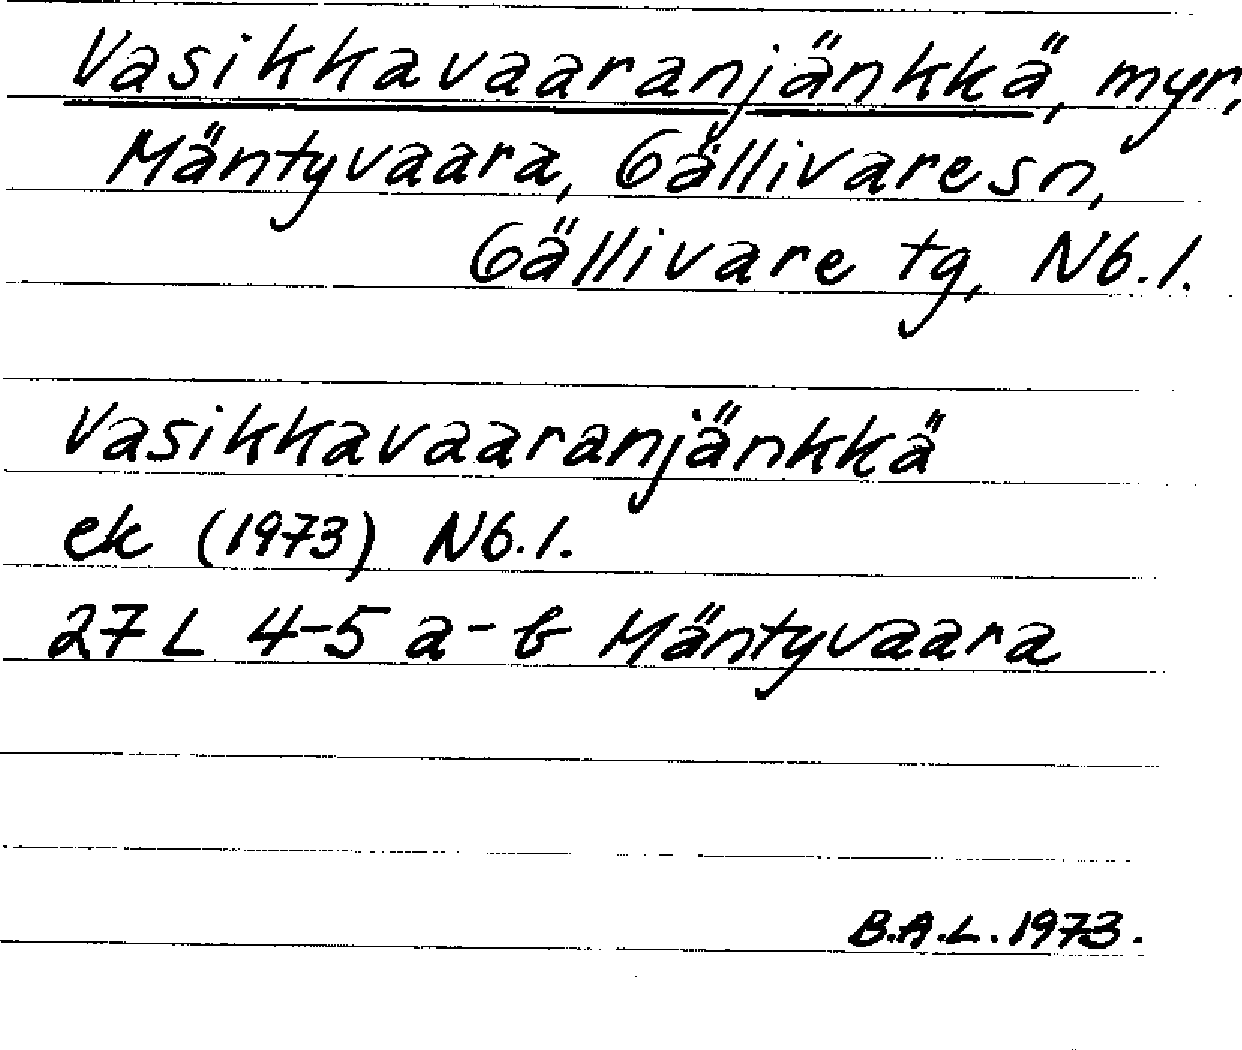 Vasikkavaaranjänkkä, myr,
Mäntyvaara, Gällivare sn,
Gällivare tg, Nb.l.
Vasikkavaaranjänkkä
ek (1973) Nb.l.
27 L 4-5 a-b Mäntyvaara
B.A.L. 1973.